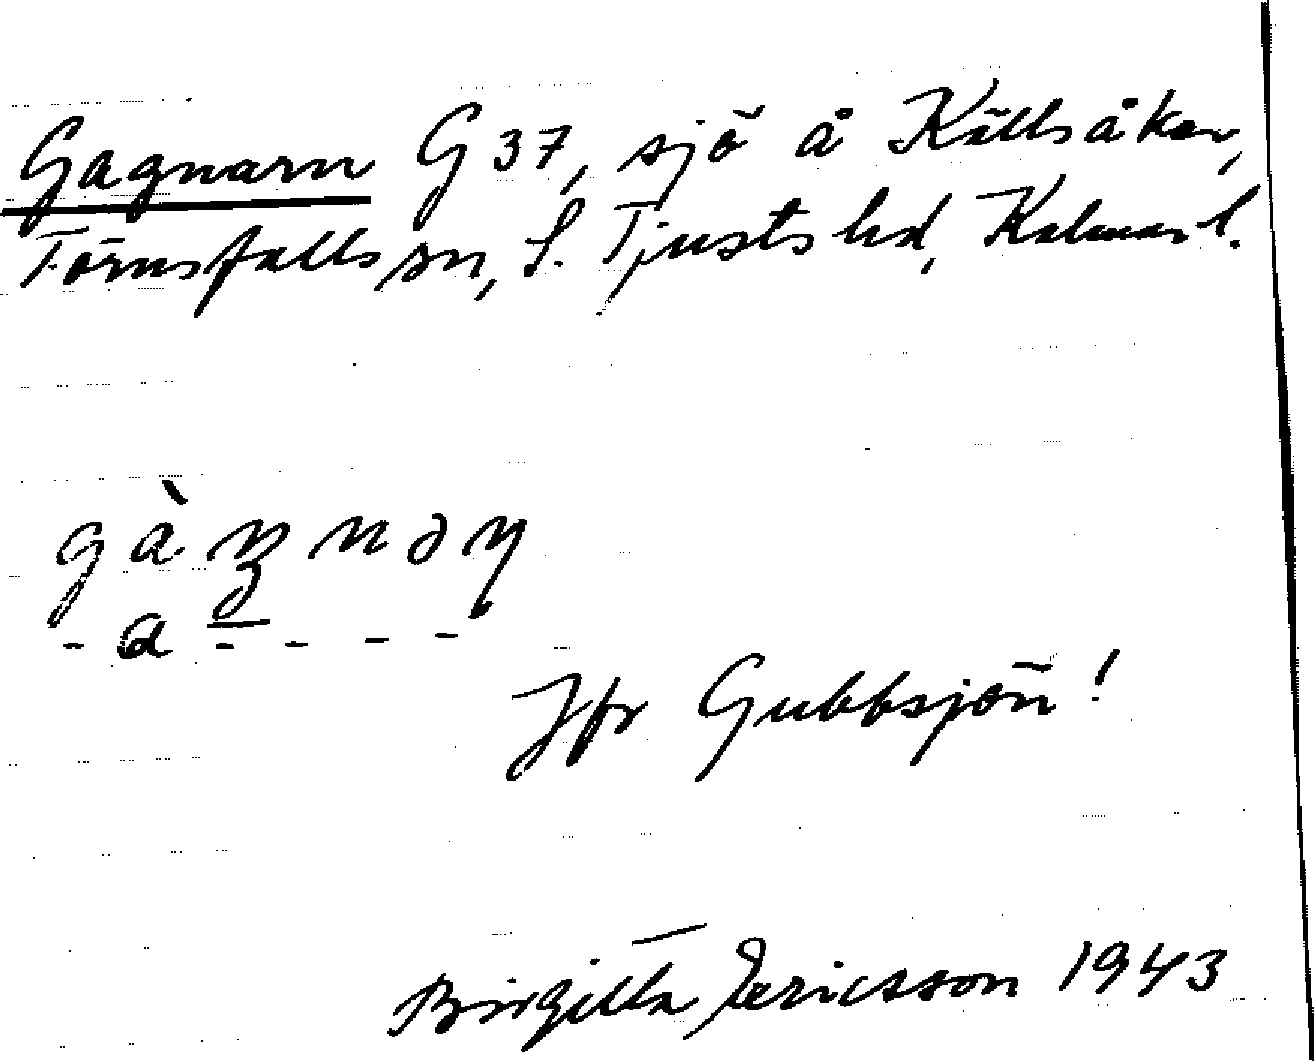 Gagnarn G 37, sjö å Källsåker,
Törnsfalls sn, S. Tjusts hd, Kalmar l.
gàŋnən
- a - - - -
Jfr Gubbsjön!
Birgitta Ericsson 1943